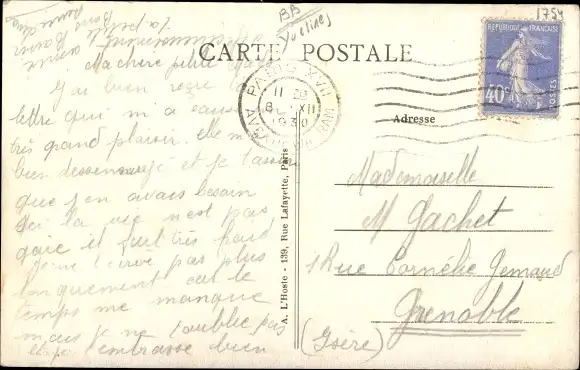 1754
BB
Yvelines
CARTE POSTALE
REPUBLIQUE FRANÇAISE
40c
POSTES
PARIS XVII
11
8 XII
1930
Adresse
Ma chère petite
J'ai bien reçu ta
lettre qui m'a causé
très grand plaisir. elle m'a
bien et je t'assure
que j'en avais besoin
ici la vie n'est pas
gaie il fait très froid
Je ne t'écris pas plus
longuement car le
temps me manque
mais je ne t'oublie pas
t'embrasse bien
A. L'Hoste - 139, Rue Lafayette, Paris
Mademoiselle
M Gachet
1 Rue Cornélie Gemond
Grenoble
(Isère)